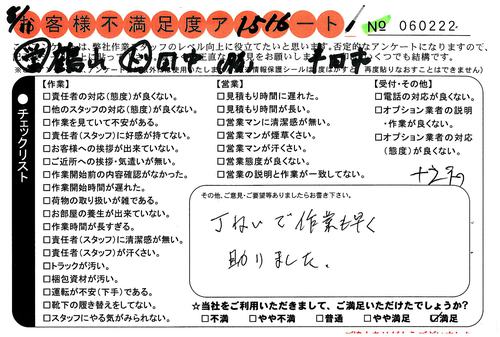 8/10
お客様不満足度アンケート
1516
No 060222
アンケートは、弊社作業スタッフのレベル向上に役立てたいと思います。否定的なアンケートになりますので、
チェックリスト
【作業】
□責任者の対応(態度)が良くない。
□他のスタッフの対応(態度)が良くない。
□作業を見ていて不安がある。
□責任者(スタッフ)に好感が持てない。
□お客様への挨拶が出来ていない。
□ご近所への挨拶・気遣いが無い。
□作業開始前の内容確認がなかった。
□作業開始時間が遅れた。
□荷物の取り扱いが雑である。
□お部屋の養生が出来ていない。
□作業時間が長すぎる。
□責任者(スタッフ)に清潔感が無い。
□責任者(スタッフ)が汗くさい。
□トラックが汚い。
□梱包資材が汚い。
□運転が不安(下手)である。
□靴下の履き替えをしてない。
□スタッフにやる気がみられない。
【営業】
□見積もり時間に遅れた。
□見積もり時間が長い。
□営業マンに清潔感が無い。
□営業マンが煙草くさい。
□営業マンが汗くさい。
□営業態度が良くない。
□営業の説明と作業が一致してない。
【受付・その他】
□電話の対応が良くない。
□オプション業者の説明
・作業が良くない。
□オプション業者の対応
(態度)が良くない。
その他、ご意見・ご要望等ありましたらお書き下さい。
丁ねいで作業も早く
助りました。
☆当社をご利用いただきまして、ご満足いただけたでしょうか?
□不満 □やや不満 □普通 □やや満足 ☑満足